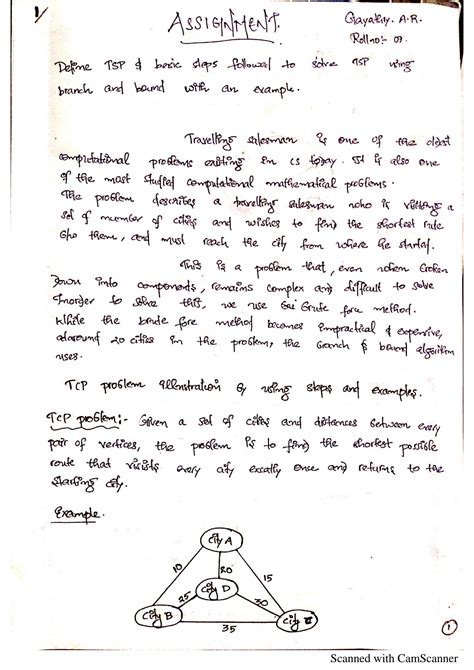 1/
ASSIGNMENT.
Gayathry. A.R.
Roll no:- 07.
Define TSP & basic steps followed to solve TSP using
branch and bound with an example.
Travelling salesman is one of the oldest
computational problems existing in CS today. It is also one
of the most studied computational mathematical problems.
The problem describes a travelling salesman who is visiting a
set of number of cities and wishes to find the shortest route
them, and must reach the city from where he started.
This is a problem that, even when broken
Down into components, remains complex and difficult to solve
Inorder to solve this, we use brute force method.
While the brute force method becomes impractical & expensive,
around 20 cities in the problem, the branch & bound algorithm
uses.
TCP problem illenstration by using steps and examples.
TCP problem:- Given a set of cities and distances between every
pair of vertices, the problem is to find the shortest possible
route that visists every city excatly once and returns to the
starting city.
Example.
City A
10
20
15
City D
25
30
City B
City C
35
1
Scanned with CamScanner